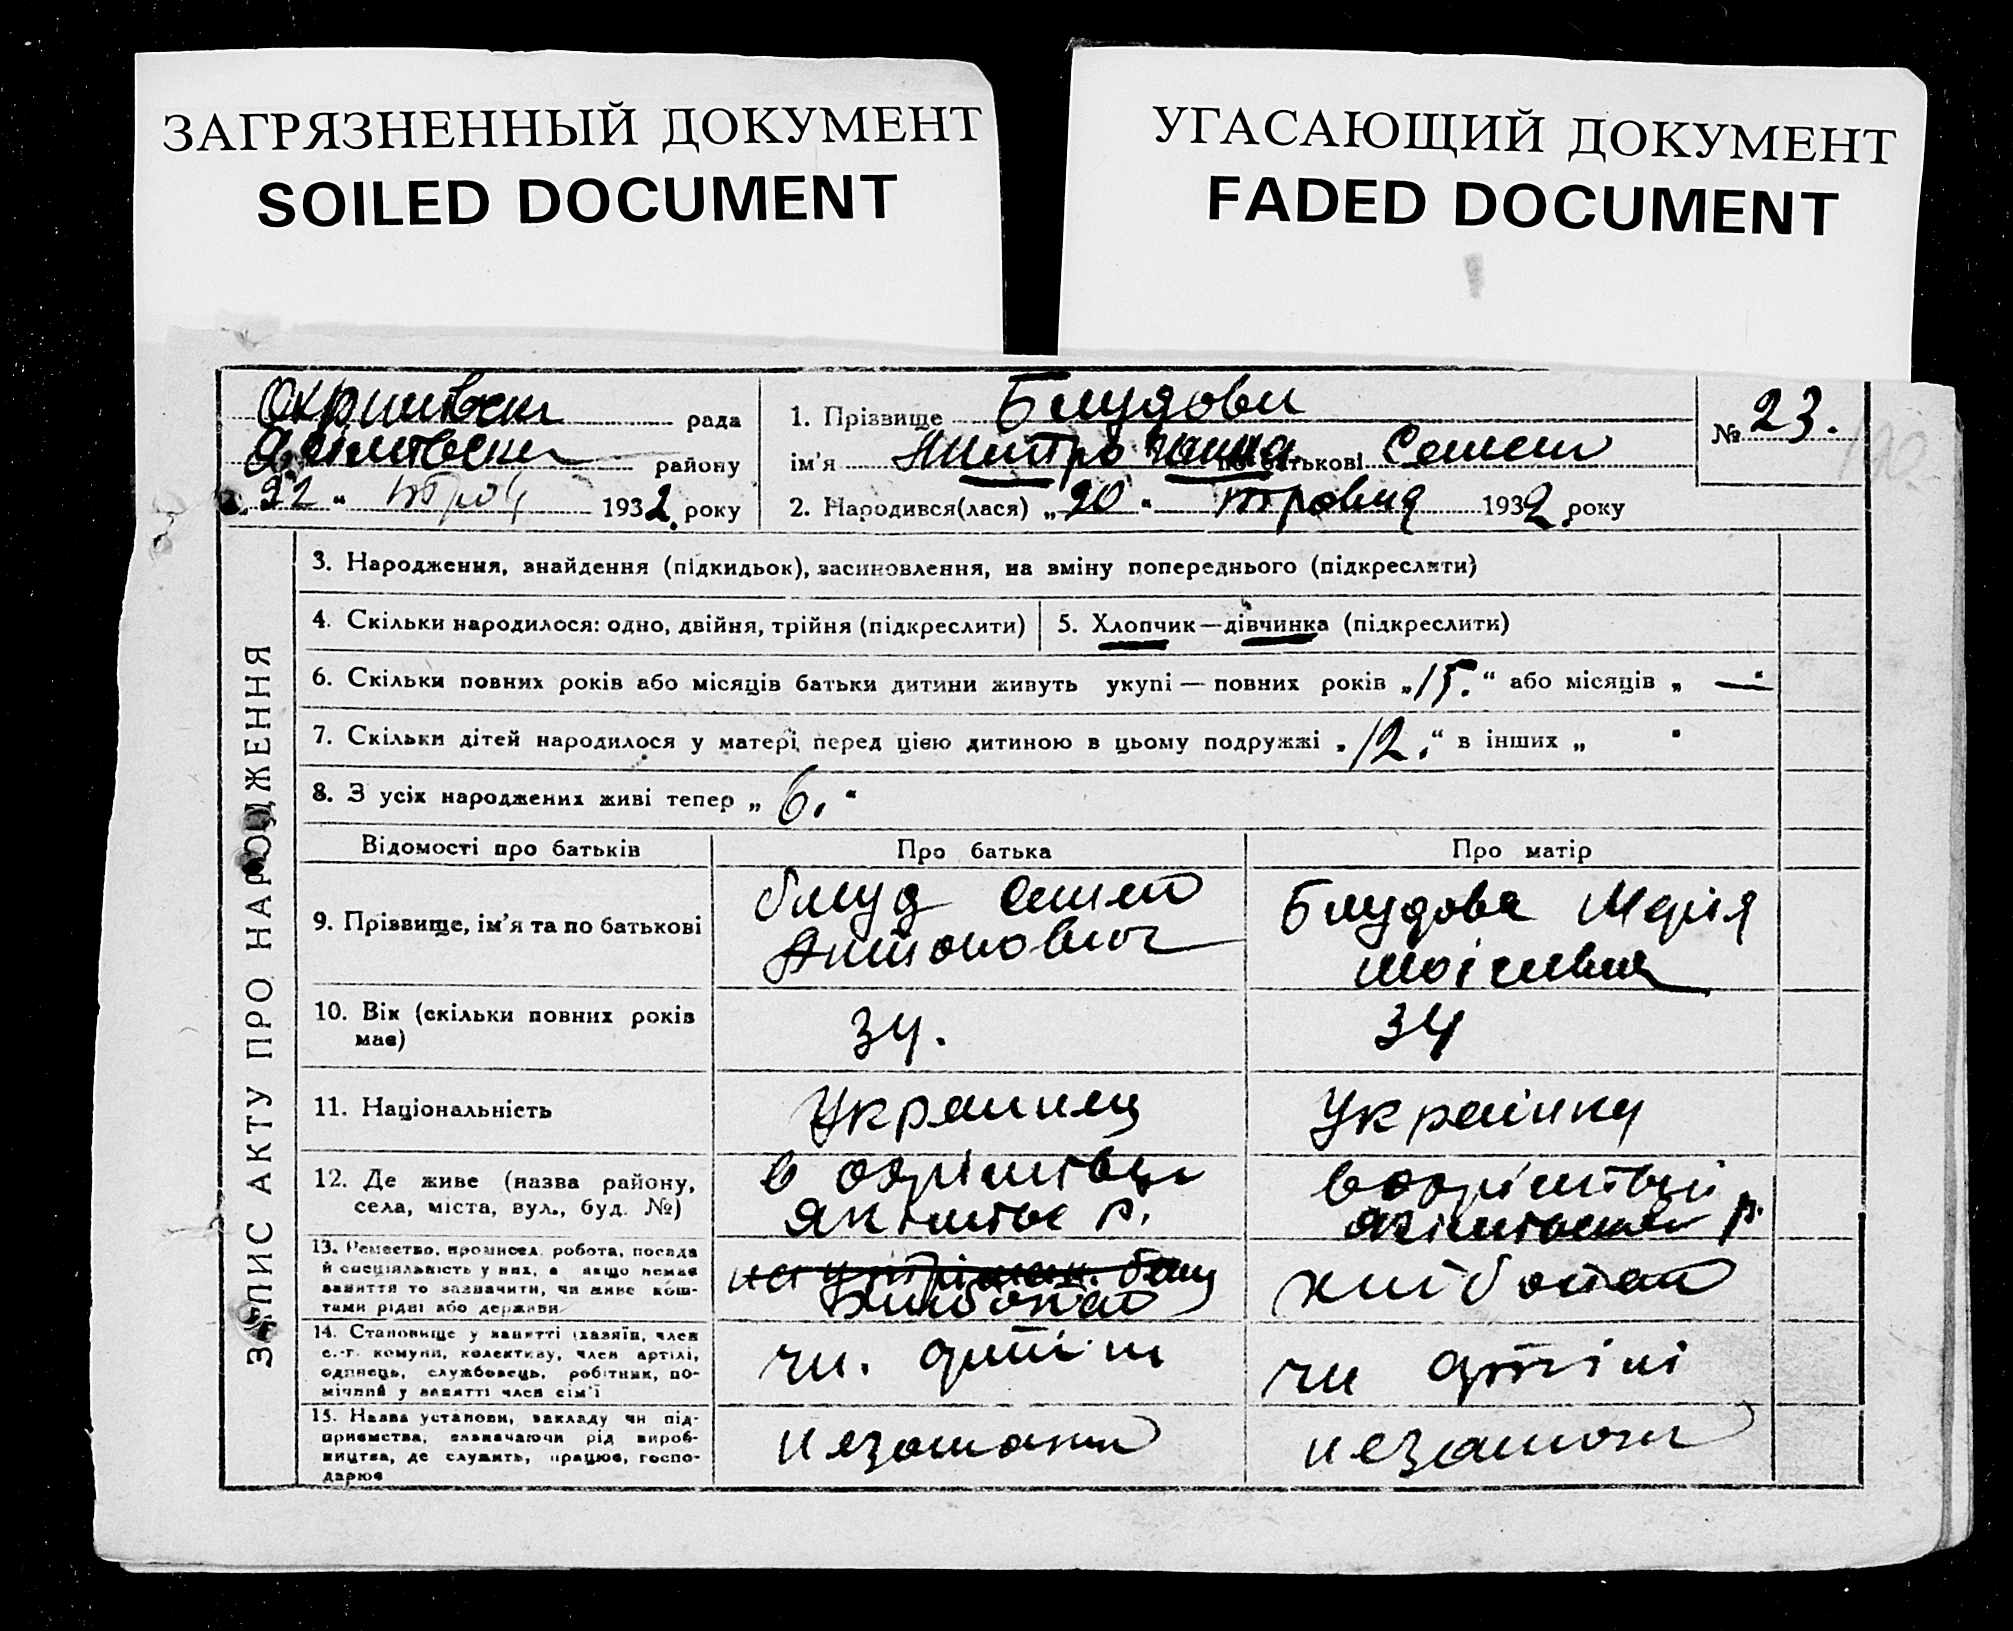 ЗАГРЯЗНЕННЫЙ ДОКУМЕНТ
SOILED DOCUMENT
УГАСАЮЩИЙ ДОКУМЕНТ
FADED DOCUMENT
рада
району
22 1932 року
1. Прізвище Блудови
ім'я Дмитро Ганна по батькові Семен
2. Народився(лася) „20" травня 1932 року
№ 23.
ЗАПИС АКТУ ПРО НАРОДЖЕННЯ
3. Народження, знайдення (підкидьок), засиновлення, на зміну попереднього (підкреслити)
4. Скільки народилося: одно, двійня, трійня (підкреслити)
5. Хлопчик—дівчинка (підкреслити)
6. Скільки повних років або місяців батьки дитини живуть укупі — повних років „15." або місяців „—"
7. Скільки дітей народилося у матері перед цією дитиною в цьому подружжі „12." в інших „ "
8. З усіх народжених живі тепер „6."
Відомості про батьків
Про батька
Про матір
9. Прізвище, ім'я та по батькові
Блуд Семен
Антонович
Блудова Марія
10. Вік (скільки повних років
має)
34.
34
11. Національність
Украинец
Українка
12. Де живе (назва району,
села, міста, вул., буд. №)
в
р.
в
р.
13. Ремество, промисел, робота, посада
й спеціяльність у них, а якщо немає
заняття то зазначити, чи живе кош-
тами рідні або держави
хлібопаш
хлібопаш
14. Становище у занятті (хазяїн, член
с.-г. комуни, колективу, член артілі,
одинець, службовець, робітник, по-
мічний у занятті член сім'ї
чл.
чл
15. Назва установи, закладу чи під-
приємства, зазначаючи рід вироб-
ництва, де служить, працює, госпо-
дарює
незаможн
незаможн